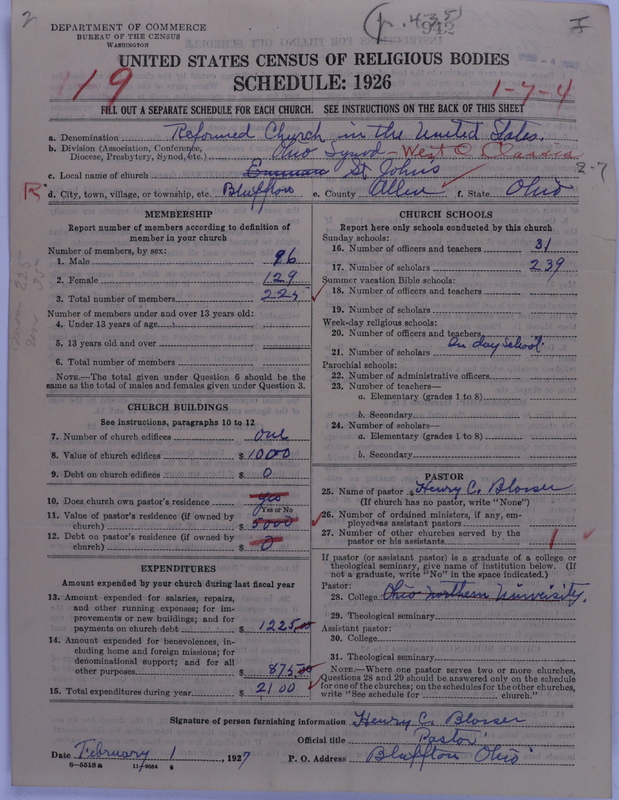 2
DEPARTMENT OF COMMERCE
BUREAU OF THE CENSUS
WASHINGTON
UNITED STATES CENSUS OF RELIGIOUS BODIES
SCHEDULE: 1926
119
1-7-4
FILL OUT A SEPARATE SCHEDULE FOR EACH CHURCH. SEE INSTRUCTIONS ON THE BACK OF THIS SHEET
a. Denomination Reformed Church in the United States.
b. Division (Association, Conference, Diocese, Presbytery, Synod, etc.) Ohio Synod - West O Classis
c. Local name of church St Johns
2-7
R
d. City, town, village, or township, etc. Bluffton e. County Allen f. State Ohio
MEMBERSHIP
Report number of members according to definition of
member in your church
Number of members, by sex:
1. Male 96
2. Female 129
3. Total number of members 225
Number of members under and over 13 years old:
4. Under 13 years of age
5. 13 years old and over
6. Total number of members
NOTE.—The total given under Question 6 should be the
same as the total of males and females given under Question 3.
CHURCH BUILDINGS
See instructions, paragraphs 10 to 12
7. Number of church edifices one
8. Value of church edifices $ 10000
9. Debt on church edifices $ 0
10. Does church own pastor's residence yes
(Yes or No)
11. Value of pastor's residence (if owned by
church) $ 5000
12. Debt on pastor's residence (if owned by
church) $ 0
EXPENDITURES
Amount expended by your church during last fiscal year
13. Amount expended for salaries, repairs,
and other running expenses; for im-
provements or new buildings; and for
payments on church debt $ 1225.00
14. Amount expended for benevolences, in-
cluding home and foreign missions; for
denominational support; and for all
other purposes $ 875.00
15. Total expenditures during year $ 2100
CHURCH SCHOOLS
Report here only schools conducted by this church
Sunday schools:
16. Number of officers and teachers 31
17. Number of scholars 239
Summer vacation Bible schools:
18. Number of officers and teachers
19. Number of scholars
Week-day religious schools:
20. Number of officers and teachers
21. Number of scholars In day School
Parochial schools:
22. Number of administrative officers
23. Number of teachers—
a. Elementary (grades 1 to 8)
b. Secondary
24. Number of scholars—
a. Elementary (grades 1 to 8)
b. Secondary
PASTOR
25. Name of pastor Henry C. Blosser
(If church has no pastor, write "None")
26. Number of ordained ministers, if any, em-
ployed as assistant pastors
27. Number of other churches served by the
pastor or his assistants 1
If pastor (or assistant pastor) is a graduate of a college or
theological seminary, give name of institution below. (If
not a graduate, write "No" in the space indicated.)
Pastor:
28. College Ohio Northern University.
29. Theological seminary
Assistant pastor:
30. College
31. Theological seminary
NOTE.—Where one pastor serves two or more churches,
Questions 28 and 29 should be answered only on the schedule
for one of the churches; on the schedules for the other churches,
write "See schedule for church."
Signature of person furnishing information Henry C. Blosser
Official title Pastor
Date February 1, 1927 P. O. Address Bluffton Ohio
8-5518a 11-9054